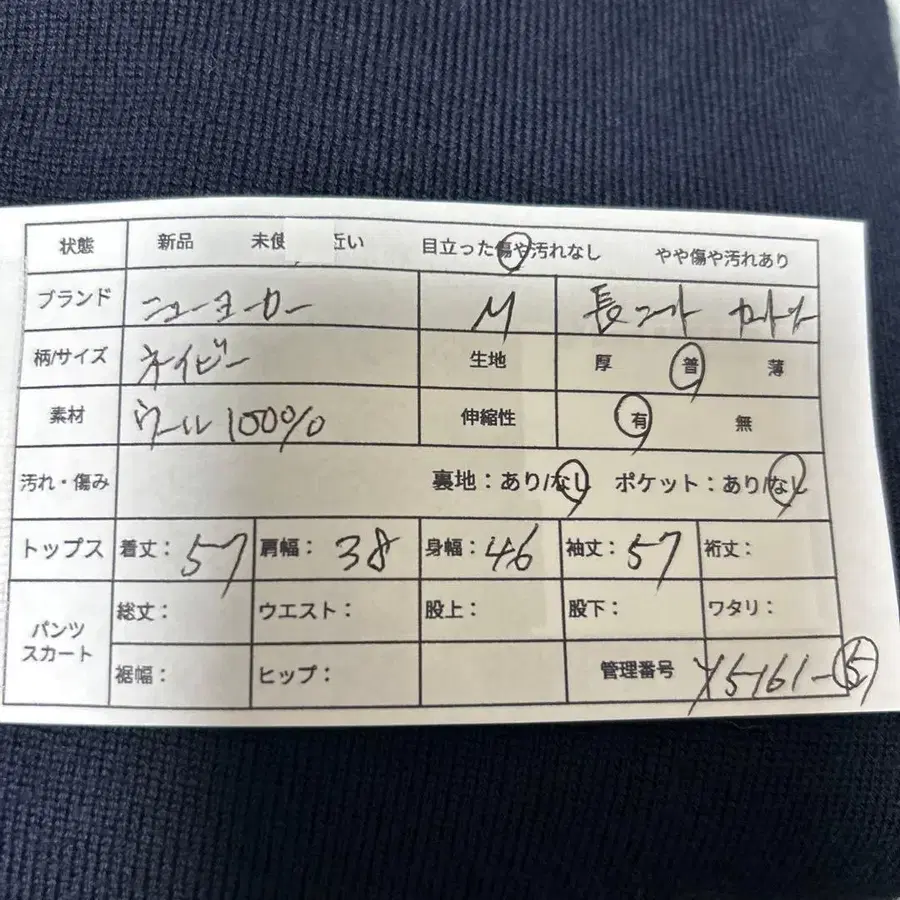 状態 新品 未使 近い 目立った傷や汚れなし やや傷や汚れあり
ブランド ニューヨーカー M 長
柄/サイズ ネイビー 生地 厚 普 薄
素材 ウール100% 伸縮性 有 無
汚れ・傷み 裏地：あり/なし ポケット：あり/なし
トップス 着丈：57 肩幅：38 身幅：46 袖丈：57 裄丈：
パンツ スカート 総丈： ウエスト： 股上： 股下： ワタリ：
裾幅： ヒップ： 管理番号 Y5161-5